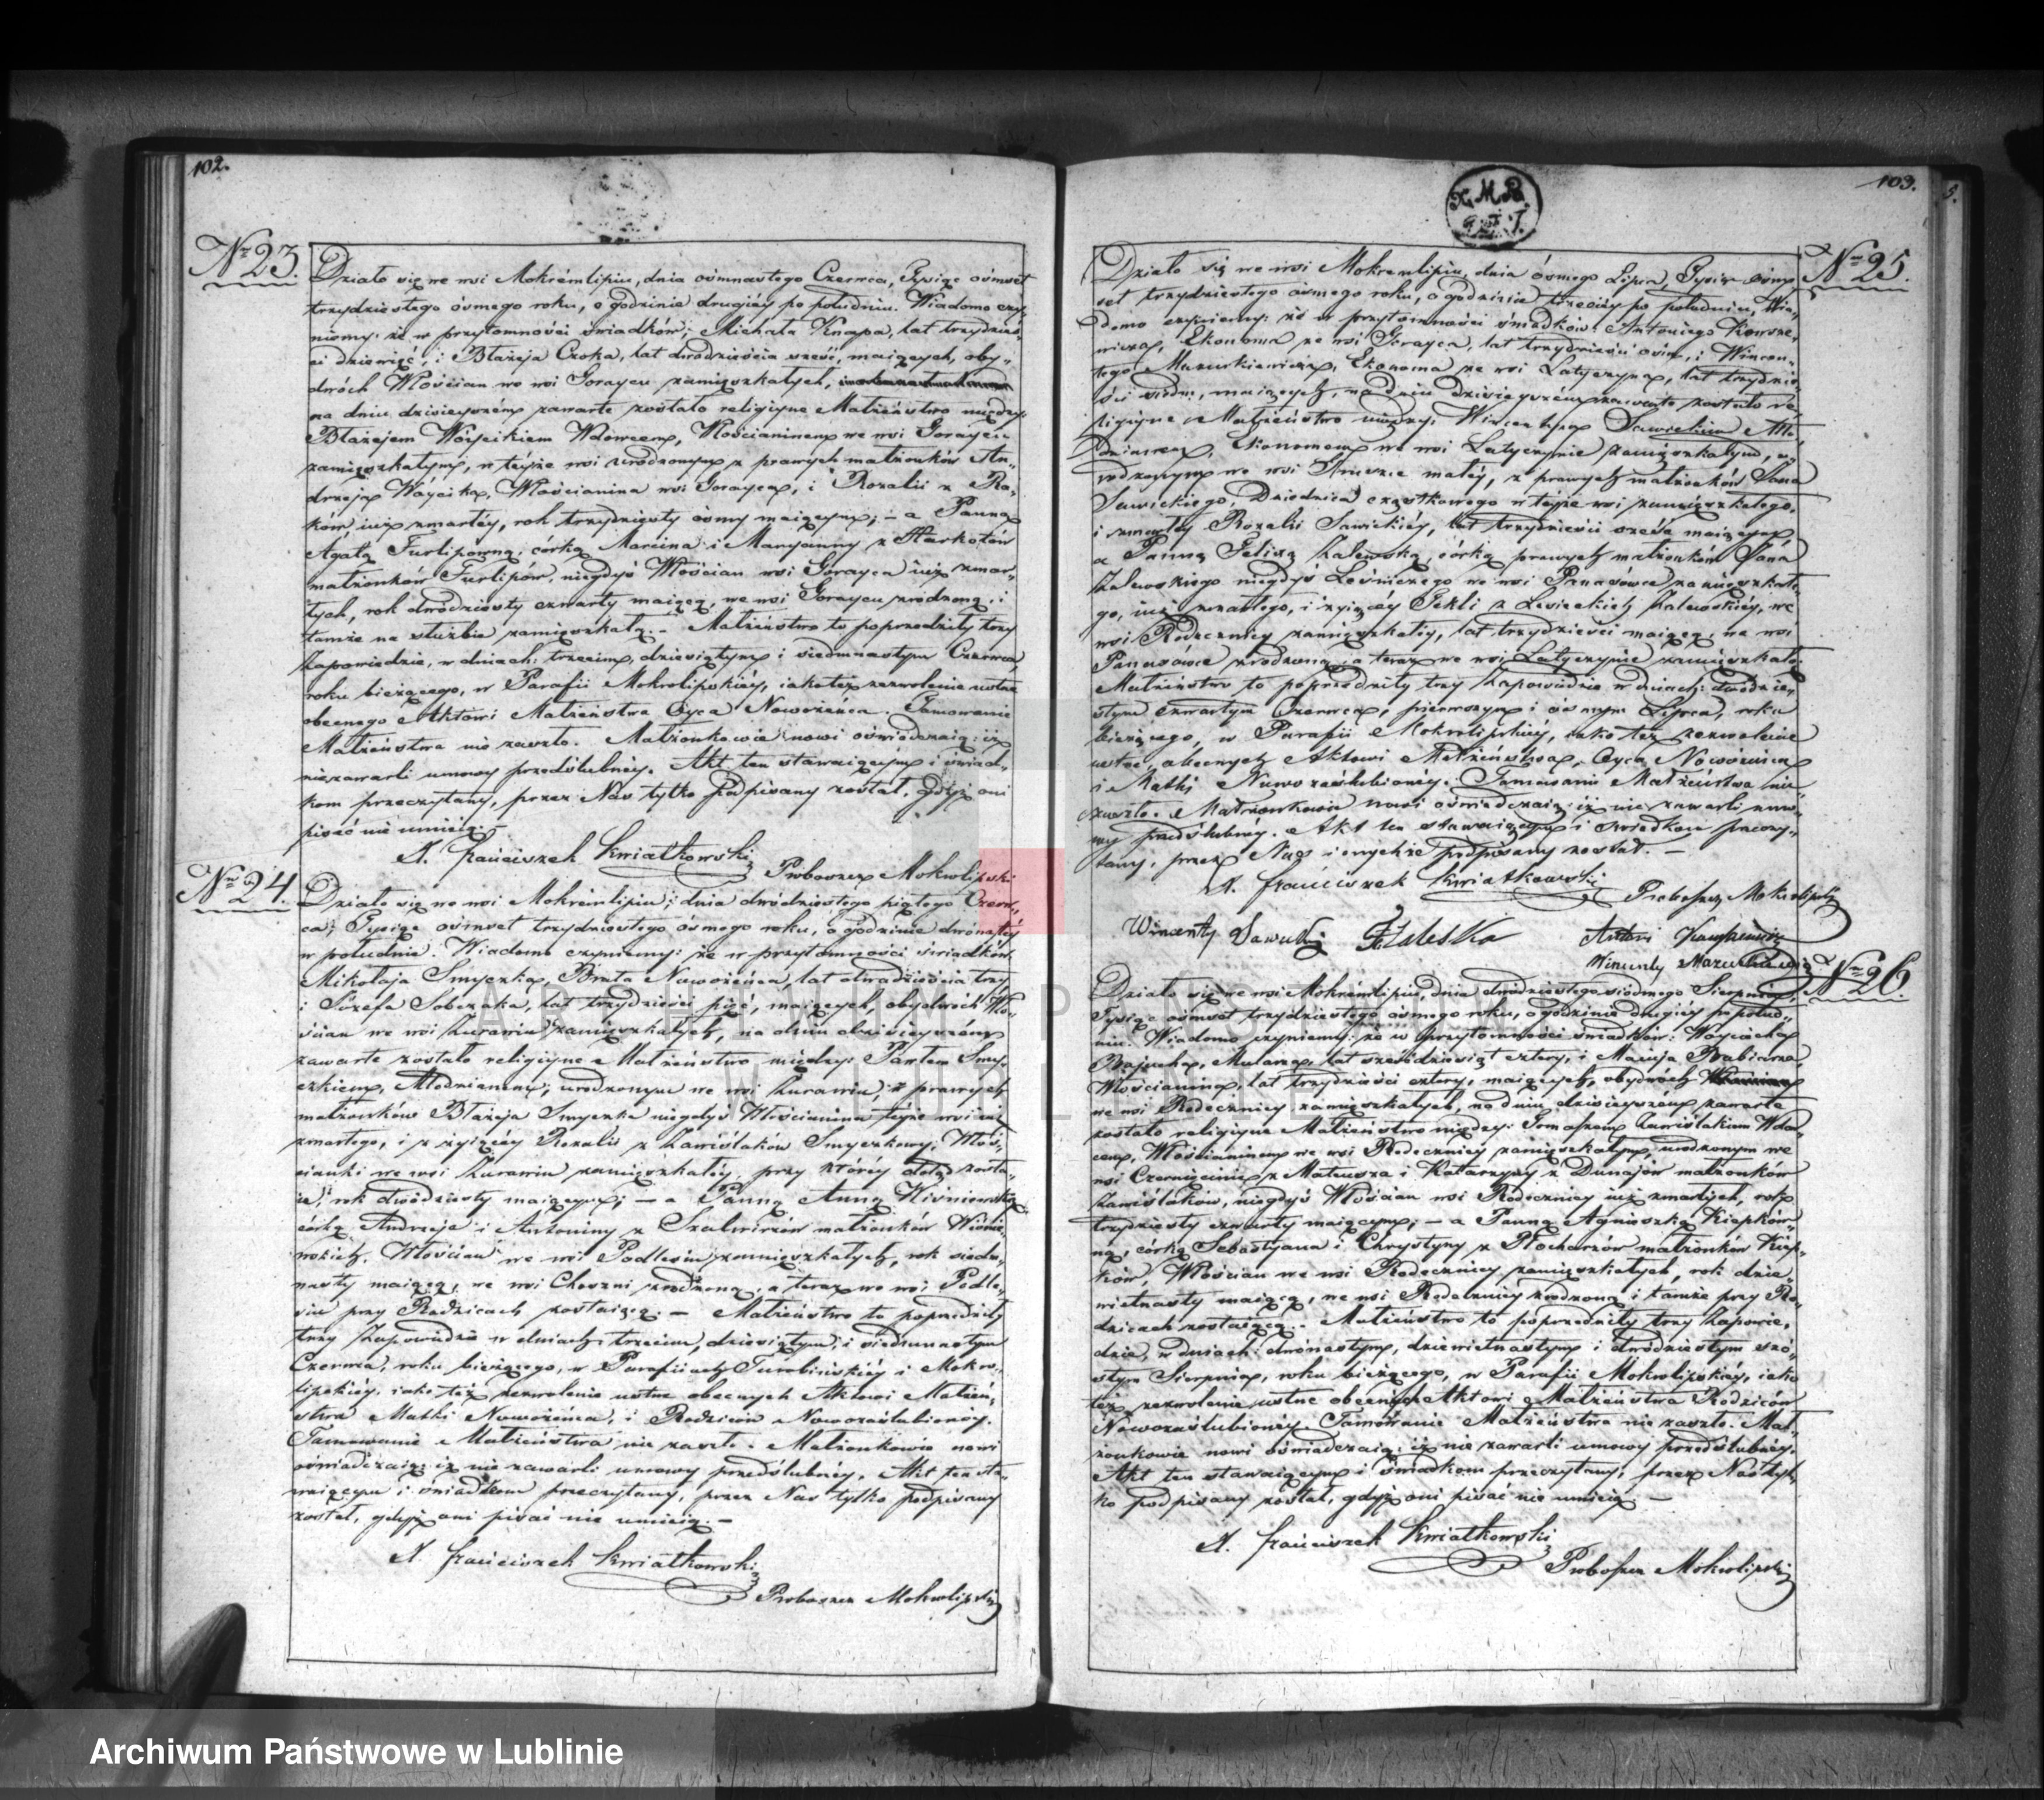 102.
Nr 23.
Działo się we wsi Mokrémlipiu, dnia ośmnastego Czerwca, Tysiąc ośmset
trzydziestego ósmego roku, o godzinie drugiéy po południu. Wiadomo czy-
niemy: że w przytomności świadków; Michała Knapa, lat trzydzieś-
ci dziewięć, i Błażeja Czoka, lat dwadzieścia sześć, maiących, oby-
dwóch Włościan we wsi Goraycu zamięszkałych,
na dniu dzisieyszém zawarte zostało religiyne Małżeństwo między:
Błażejem Wóycikiem Wdowcem, Włościaninem we wsi Goraycu
zamięszkałym, w téyże wsi urodzonym z prawych małżonków An-
drzeja Wóycika, Włościanina wsi Gorayca, i Rozalii z Ra-
ków iuż zmarłéy, rok trzydziesty ósmy maiącym; — a Panną
Agatą Furlipowną, córką Marcina i Maryanny z
małżonków Furlipów, niegdyś Włościan wsi Gorayca iuż zmar-
łych, rok dwódziesty czwarty maiącą, we wsi Goraycu zrodzoną, i
tamże na służbie zamięszkałą. — Małżeństwo to poprzedziły trzy
Zapowiedzie, w dniach: trzecim, dziewiątym i siedmnastym Czerwca
roku bieżącego, w Parafii Mokrolipskiéy, iako też zezwolenie ustne
obecnego Aktowi Małżeństwa Oyca Nowożeńca. Tamowanie
Małżeństwa nie zaszło. Małżonkowie nowi oświadczaią: iż
niezawarli umowy przedślubnéy. Akt ten stawaiącym i świad-
kom przeczytany, przez Nas tylko podpisany został, gdyż oni
pisać nie umieią. —
X. Franciszek Kwiatkowski
Proboszcz Mokrolipski
Nr 24.
Działo się we wsi Mokrémlipiu; dnia dwódziestego piątego Czerw-
ca; Tysiąc ośmset trzydziestego ósmego roku, o godzinie dwónastéy
w południe. Wiadomo czyniemy: że w przytomności świadków
Mikołaja Smyczka, Brata Nowożeńca, lat dwadzieścia trzy
i Józefa Sobczaka, lat trzydzieści pięć, maiących, obydwóch Wło-
ścian we wsi Zurawiu zamięszkałych, na dniu dzisieyszém
zawarte zostało religiyne Małżeństwo między: Pawłem Smy-
czkiem, Młodzianem; urodzonym we wsi Zurawiu; z prawych
małżonków Błażeja Smyczka niegdyś Włościanina téyże wsi iuż
zmarłego, i z żyiącéy Rozalii z Zawiślaków Smyczkowy, Włoś-
cianki we wsi Zurawiu zamięszkałéy, przy któréy dotąd zosta-
ie, rok dwódziesty maiącym; — a Panną Anną Wiśniewską
córką Andrzeja i Antoniny z małżonków Wiśnie-
wskich, Włościan we wsi Podlesiu zamięszkałych, rok siedm-
nasty maiącą, we wsi zrodzoną, a teraz we wsi Podle-
siu przy Rodzicach zostaiącą. — Małżeństwo to poprzedziły
trzy Zapowiedzie w dniach: trzecim, dziewiątym, i siedmnastym
Czerwca, roku bieżącego, w Parafiiach Turobińskiéy i Mokro-
lipskiéy, iako też zezwolenie ustne obecnych Aktowi Małżeń-
stwa Matki Nowożeńca, i Rodziców Nowozaślubionéy.
Tamowanie Małżeństwa nie zaszło. Małżonkowie nowi
oświadczaią: iż nie zawarli umowy przedślubnéy. Akt ten sta-
waiącym i świadkom przeczytany, przez Nas tylko podpisany
został, gdyż oni pisać nie umieią. —
X. Franciszek Kwiatkowski
Proboszcz Mokrolipski
103.
Nr 25.
Działo się we wsi Mokremlipiu, dnia ósmego Lipca, Tysiąc ośm-
set trzydziestego ósmego roku, o godzinie trzeciéy po południu, Wia-
domo czyniemy: że w przytomności świadków: Antoniego
Ekonoma ze wsi Gorayca, lat trzydzieści ośm, i Wincen-
tego Mazurkiewicza, Ekonoma ze wsi Latyczyna, lat trzydzie-
ści siedm, maiących, na dniu dzisieyszém zawarte zostało re-
ligiyne Małżeństwo między: Wincentym Sawickim Mło-
dzianem, Ekonomem we wsi Latyczynie zamięszkałym, u-
rodzonym we wsi małéy, z prawych małżonków Jana
Sawickiego, Dziedzica cząstkowego w téyże wsi zamięszkałego,
i zmarłéy Rozalii Sawickiéy, lat trzydzieści sześć maiącym,
a Panną Felixą Zalewską, córką prawych małżonków Jana
Zalewskiego niegdyś Leśniczego we wsi Panasówce zamięszkałe-
go, iuż zmarłego, i żyiącéy Tekli z Zalewskiéy, we
wsi Radecznicy zamięszkałéy, lat trzydzieści maiącą, we wsi
Panasówce zrodzoną, a teraz we wsi Latyczynie zamięszkałą.
Małżeństwo to poprzedziły trzy Zapowiedzie w dniach: dwódzie-
stym czwartym Czerwca, pierwszym i ósmym Lipca, roku
bieżącego, w Parafii Mokrolipskiéy, iako też zezwolenie
ustne, obecnych Aktowi Małżeństwa, Oyca Nowożeńca
i Matki Nowozaślubionéy. Tamowanie Małżeństwa nie
zaszło. Małżonkowie nowi oświadczaią: iż nie zawarli umo-
wy przedślubnéy. Akt ten stawaiącym i świadkom przeczy-
tany, przez Nas i onychże podpisany został. —
X. Franciszek Kwiatkowski
Proboszcz Mokrolipski
Wincenty Sawicki FZaleska Antoni
Wincenty Mazurkiewicz
Nr 26.
Działo się we wsi Mokrémlipiu, dnia dwódziestego siódmego Sierpnia,
Tysiąc ośmset trzydziestego ósmego roku, o godzinie drugiéy po połud-
niu. Wiadomo czyniemy: że w przytomności świadków: Woyciecha
Mularza, lat sześćdziesiąt cztery, i Macieja Babiarza,
Włościanina, lat trzydzieści cztery, maiących, obydwóch
we wsi Radecznicy zamięszkałych, na dniu dzisieyszém zawarte
zostało religiyne Małżeństwo między: Tomaszem Zawiślakiem Wdow-
cem, Włościaninem we wsi Radecznicy zamięszkałym, urodzonym we
wsi Czernięcinie z Mateusza i Katarzyny z Dunajów małżonków
Zawiślaków, niegdyś Włościan wsi Radecznicy iuż zmarłych, rok
trzydziesty czwarty maiącym; — a Panną Agnieszką Kiepków-
ną, córką Sebastyana i Chrystyny z Płocharzów małżonków Kiep-
ków, Włościan we wsi Radecznicy zamięszkałych, rok dzie-
wietnasty maiącą, we wsi Radecznicy zrodzoną i tamże przy Ro-
dzicach zostaiącą. — Małżeństwo to poprzedziły trzy Zapowie-
dzie, w dniach: dwónastym, dziewietnastym i dwódziestym szó-
stym Sierpnia, roku bieżącego, w Parafii Mokrolipskiéy, iako
też zezwolenie ustne obecnych Aktowi Małżeństwa Rodziców
Nowozaślubionéy. Tamowanie Małżeństwa nie zaszło. Mał-
żonkowie nowi oświadczaią: iż nie zawarli umowy przedślubnéy.
Akt ten stawaiącym i świadkom przeczytany, przez Nas tyl-
ko podpisany został, gdyż oni pisać nie umieią. —
X. Franciszek Kwiatkowski
Proboszcz Mokrolipski
Archiwum Państwowe w Lublinie